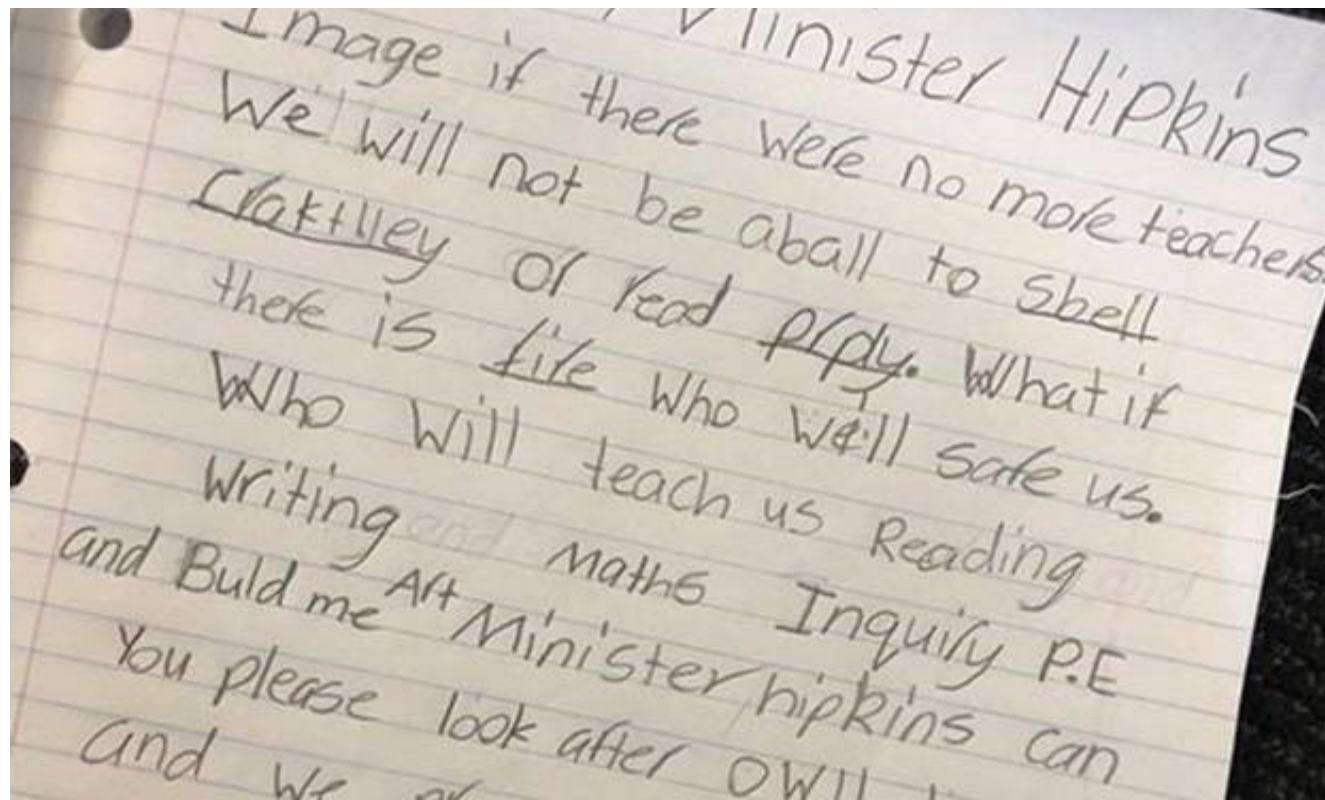 Minister Hipkins
Image if there were no more teachers.
We will not be aball to sbell
craktlley or read prply. What if
there is fire who will safe us.
Who will teach us Reading
Writing Maths Inquiry P.E
and Buld me Art Minister hipkins can
You please look after owll
and we